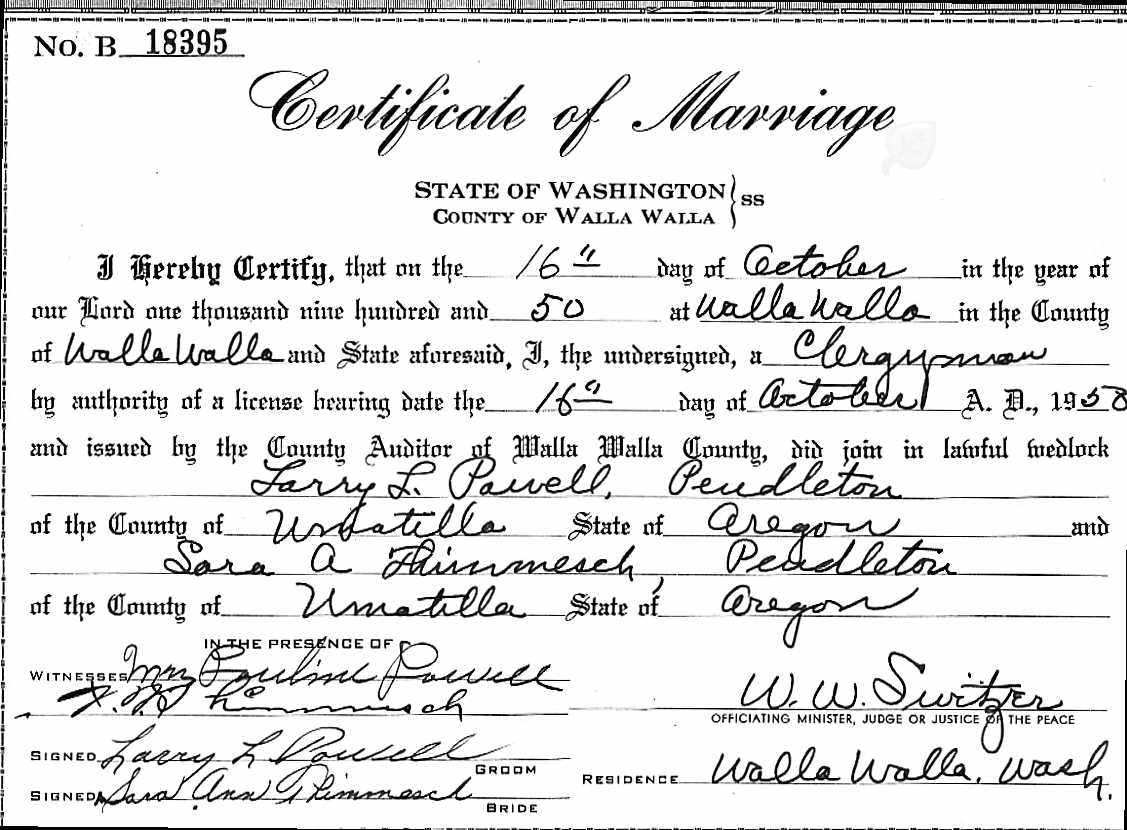 No. B 18395
Certificate of Marriage
STATE OF WASHINGTON } ss
COUNTY OF WALLA WALLA
I Hereby Certify, that on the 16" day of October in the year of
our Lord one thousand nine hundred and 50 at Walla Walla in the County
of Walla Walla and State aforesaid, I, the undersigned, a Clergyman
by authority of a license bearing date the 16" day of October A. D., 1950
and issued by the County Auditor of Walla Walla County, did join in lawful wedlock
Larry L. Powell, Pendleton
of the County of Umatilla State of Oregon and
Sara A Thimmesch, Pendleton
of the County of Umatilla State of Oregon
IN THE PRESENCE OF
WITNESSES Mrs Pauline Powell
Thimmesch
W. W. Switzer
OFFICIATING MINISTER, JUDGE OR JUSTICE OF THE PEACE
SIGNED Larry L Powell
GROOM
RESIDENCE Walla Walla, Wash.
SIGNED Sara Ann Thimmesch
BRIDE